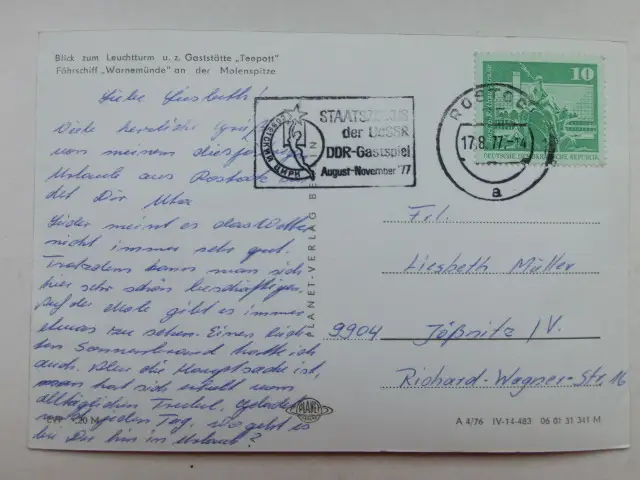 Blick zum Leuchtturm u. z. Gaststätte „Teepott"
Fährschiff „Warnemünde" an der Molenspitze
Liebe Liesbeth!
Viele herzliche Grüße
von meinem diesjährigen
Urlaub aus Rostock
det Dir Uta
Leider meint es das Wetter
nicht immer sehr gut.
Trotzdem kann man sich
hier sehr schön beschäftigen.
Auf der Mole gibt es immer
etwas zu sehen. Einen
Sonnenbrand hatte ich
auch. Aber die Hauptsache ist,
man hat sich erholt vom
alltäglichen Trubel,
jeden Tag. Wo geht es
bei Dir hin im Urlaub?
EVP 0,20 M
PLANET-VERLAG BERLIN
PLANET
STAATSZIRKUS
der UdSSR
DDR-Gastspiel
August-November '77
ROSTOCK
17.8.77
a
10
DEUTSCHE DEMOKRATISCHE REPUBLIK
Frl.
Liesbeth Müller
9904 Jößnitz / V.
Richard-Wagner-Str. 16
A 4/76 IV-14-483 06 01 31 341 M